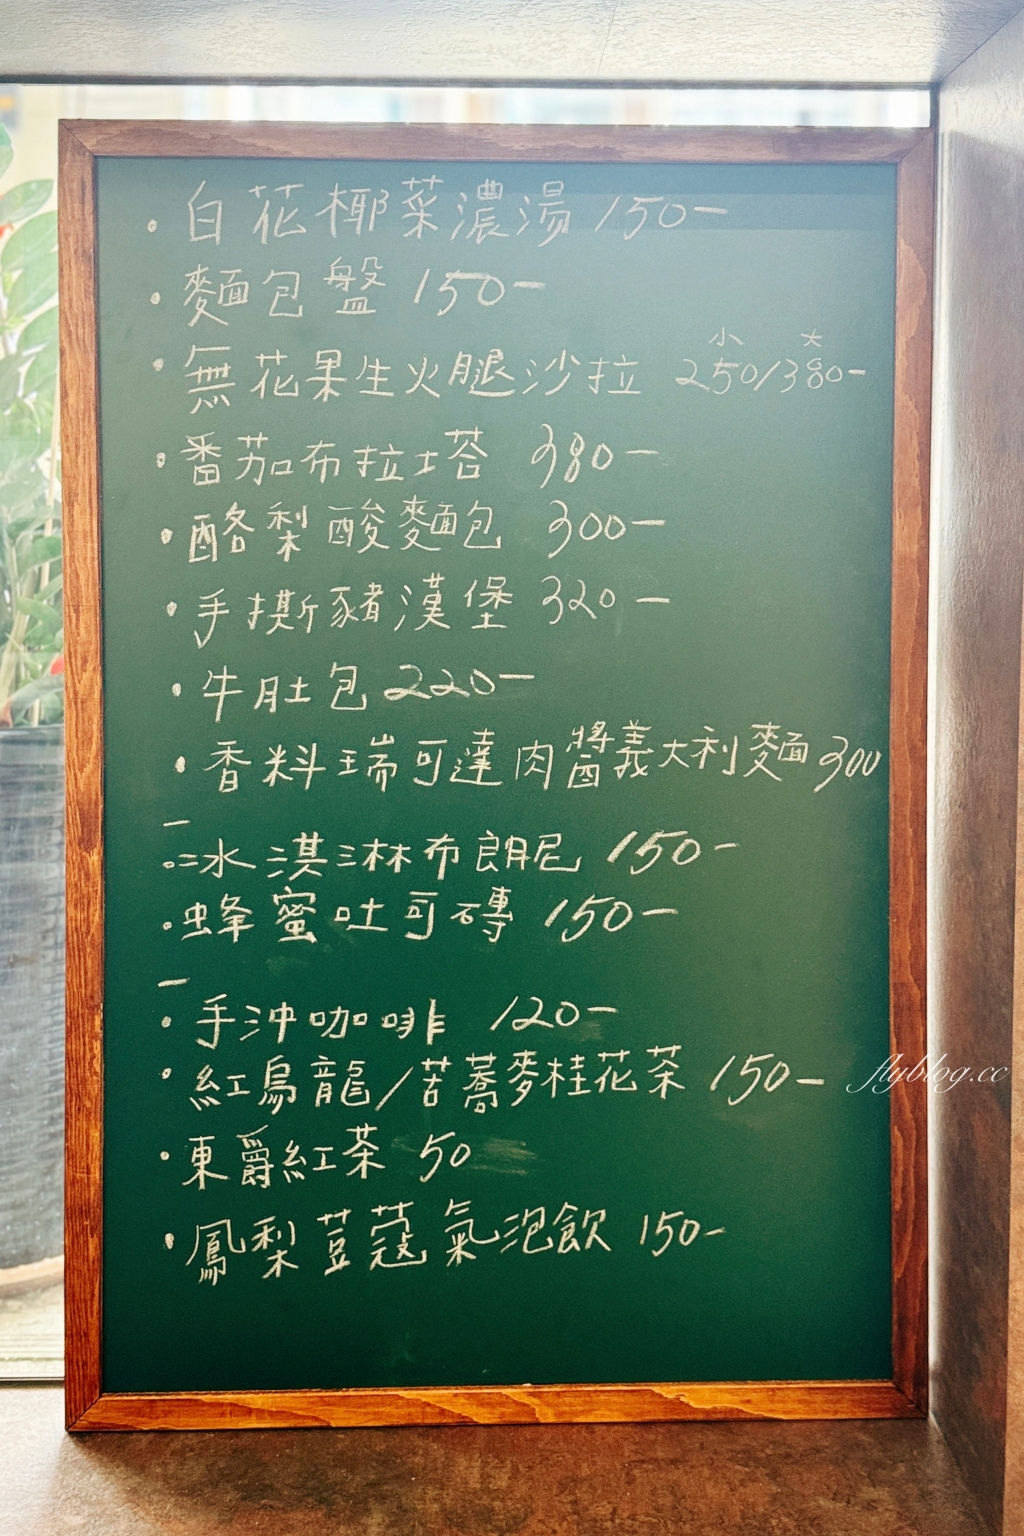 ·白花椰菜濃湯 150-
·麵包盤 150-
小 大
·無花果生火腿沙拉 250/380-
·番茄布拉塔 380-
·酪梨酸麵包 300-
·手撕豬漢堡 320-
·牛肚包 220-
·香料瑞可達肉醬義大利麵 300
-
·冰淇淋布朗尼 150-
·蜂蜜吐司磚 150-
-
·手沖咖啡 120-
·紅烏龍/苦蕎麥桂花茶 150-
·東爵紅茶 50
·鳳梨荳蔻氣泡飲 150-
flyblog.cc